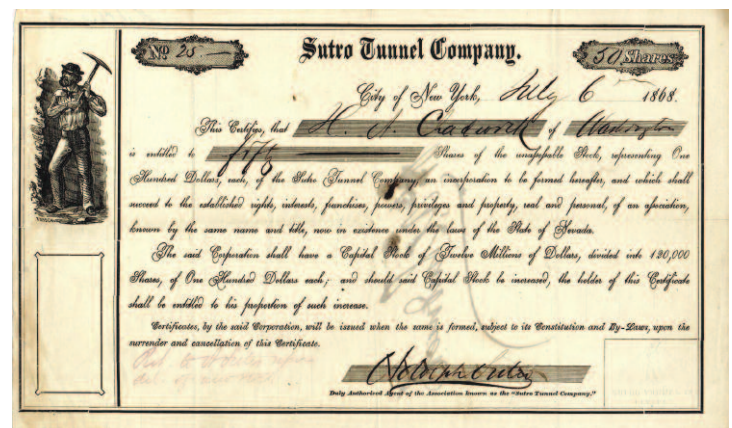 Nº 25
Sutro Tunnel Company.
50 Shares
City of New York, July 6 1868.
This Certifies, that H. A. of Washington
is entitled to Fifty Shares of the unaſseſsable Stock, representing One
Hundred Dollars, each, of the Sutro Tunnel Company, an incorporation to be formed hereafter, and which shall
succeed to the established rights, interests, franchises, powers, privileges and property, real and personal, of an aſsociation,
known by the same name and title, now in existence under the laws of the State of Nevada.
The said Corporation shall have a Capital Stock of Twelve Millions of Dollars, divided into 120,000
Shares, of One Hundred Dollars each; and should said Capital Stock be increased, the holder of this Certificate
shall be entitled to his proportion of such increase.
Certificates, by the said Corporation, will be issued when the same is formed, subject to its Constitution and By-Laws, upon the
surrender and cancellation of this Certificate.
Adolph Sutro
Duly Authorized Agent of the Association known as the "Sutro Tunnel Company."